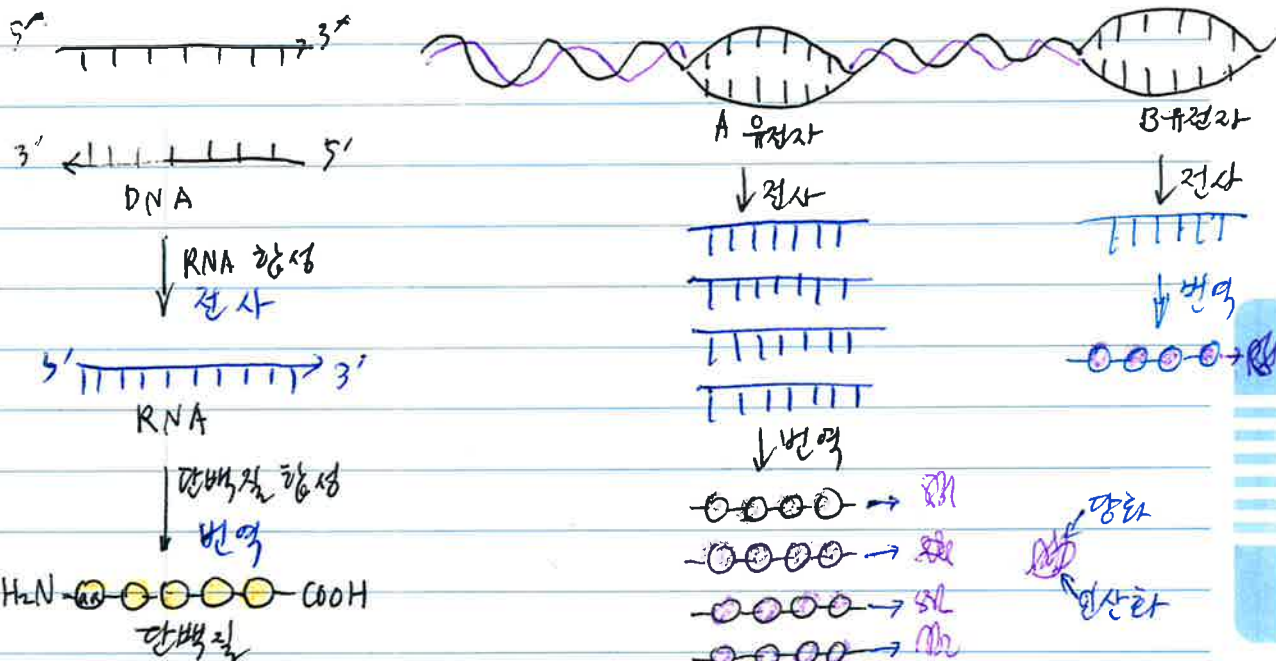 5' 3'
3' 5'
DNA
RNA 합성
전사
5' 3'
RNA
단백질 합성
번역
H₂N aa COOH
단백질
A 유전자
전사
번역
B 유전자
전사
번역
당화
인산화